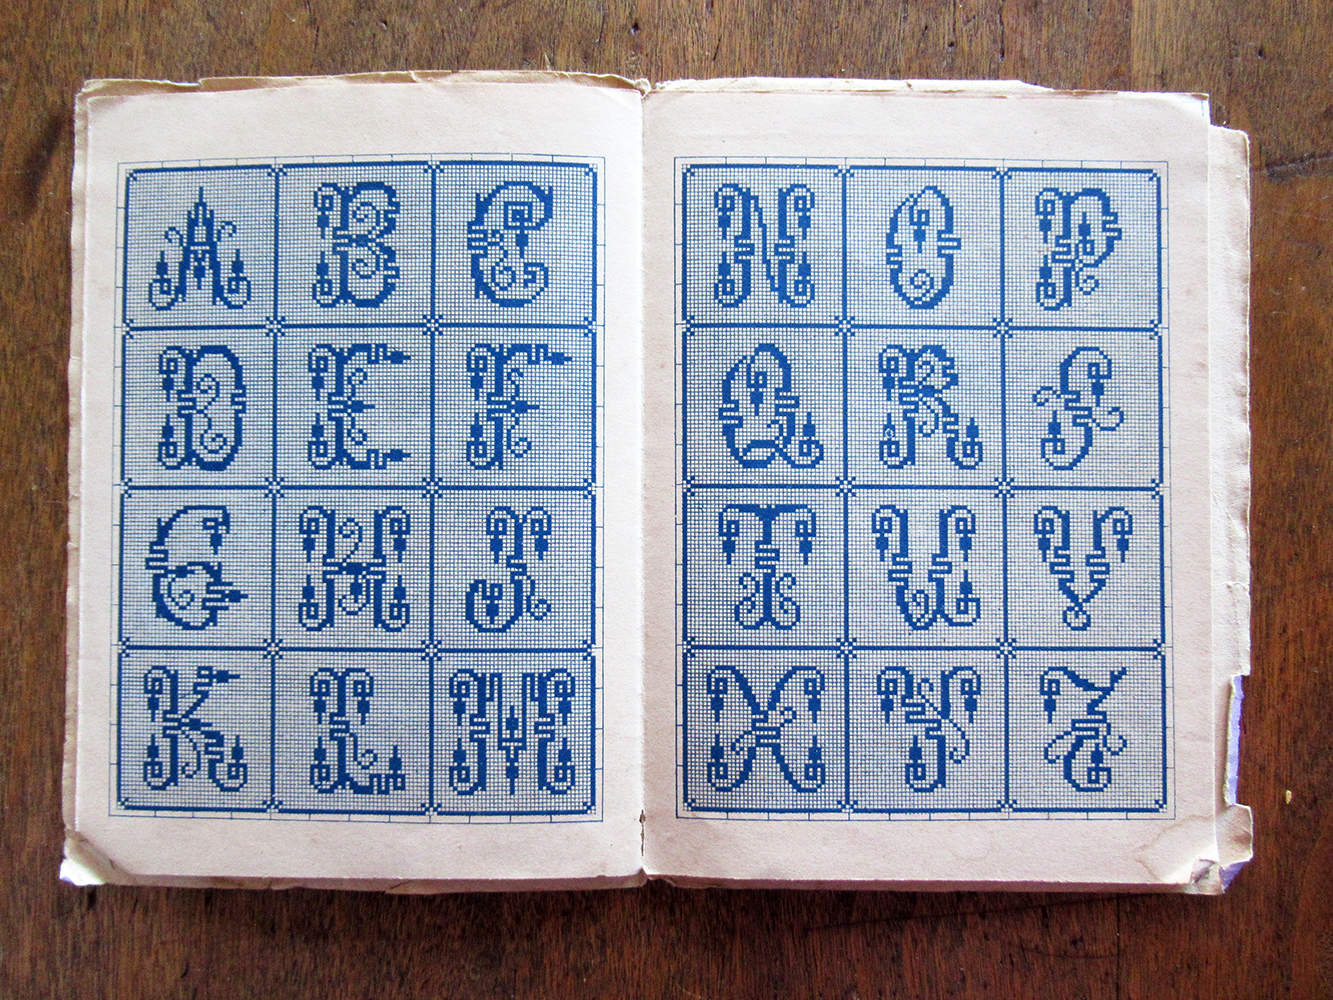 A B C
D E F
G H J
K L M
N O P
Q R S
T U V
X Y Z